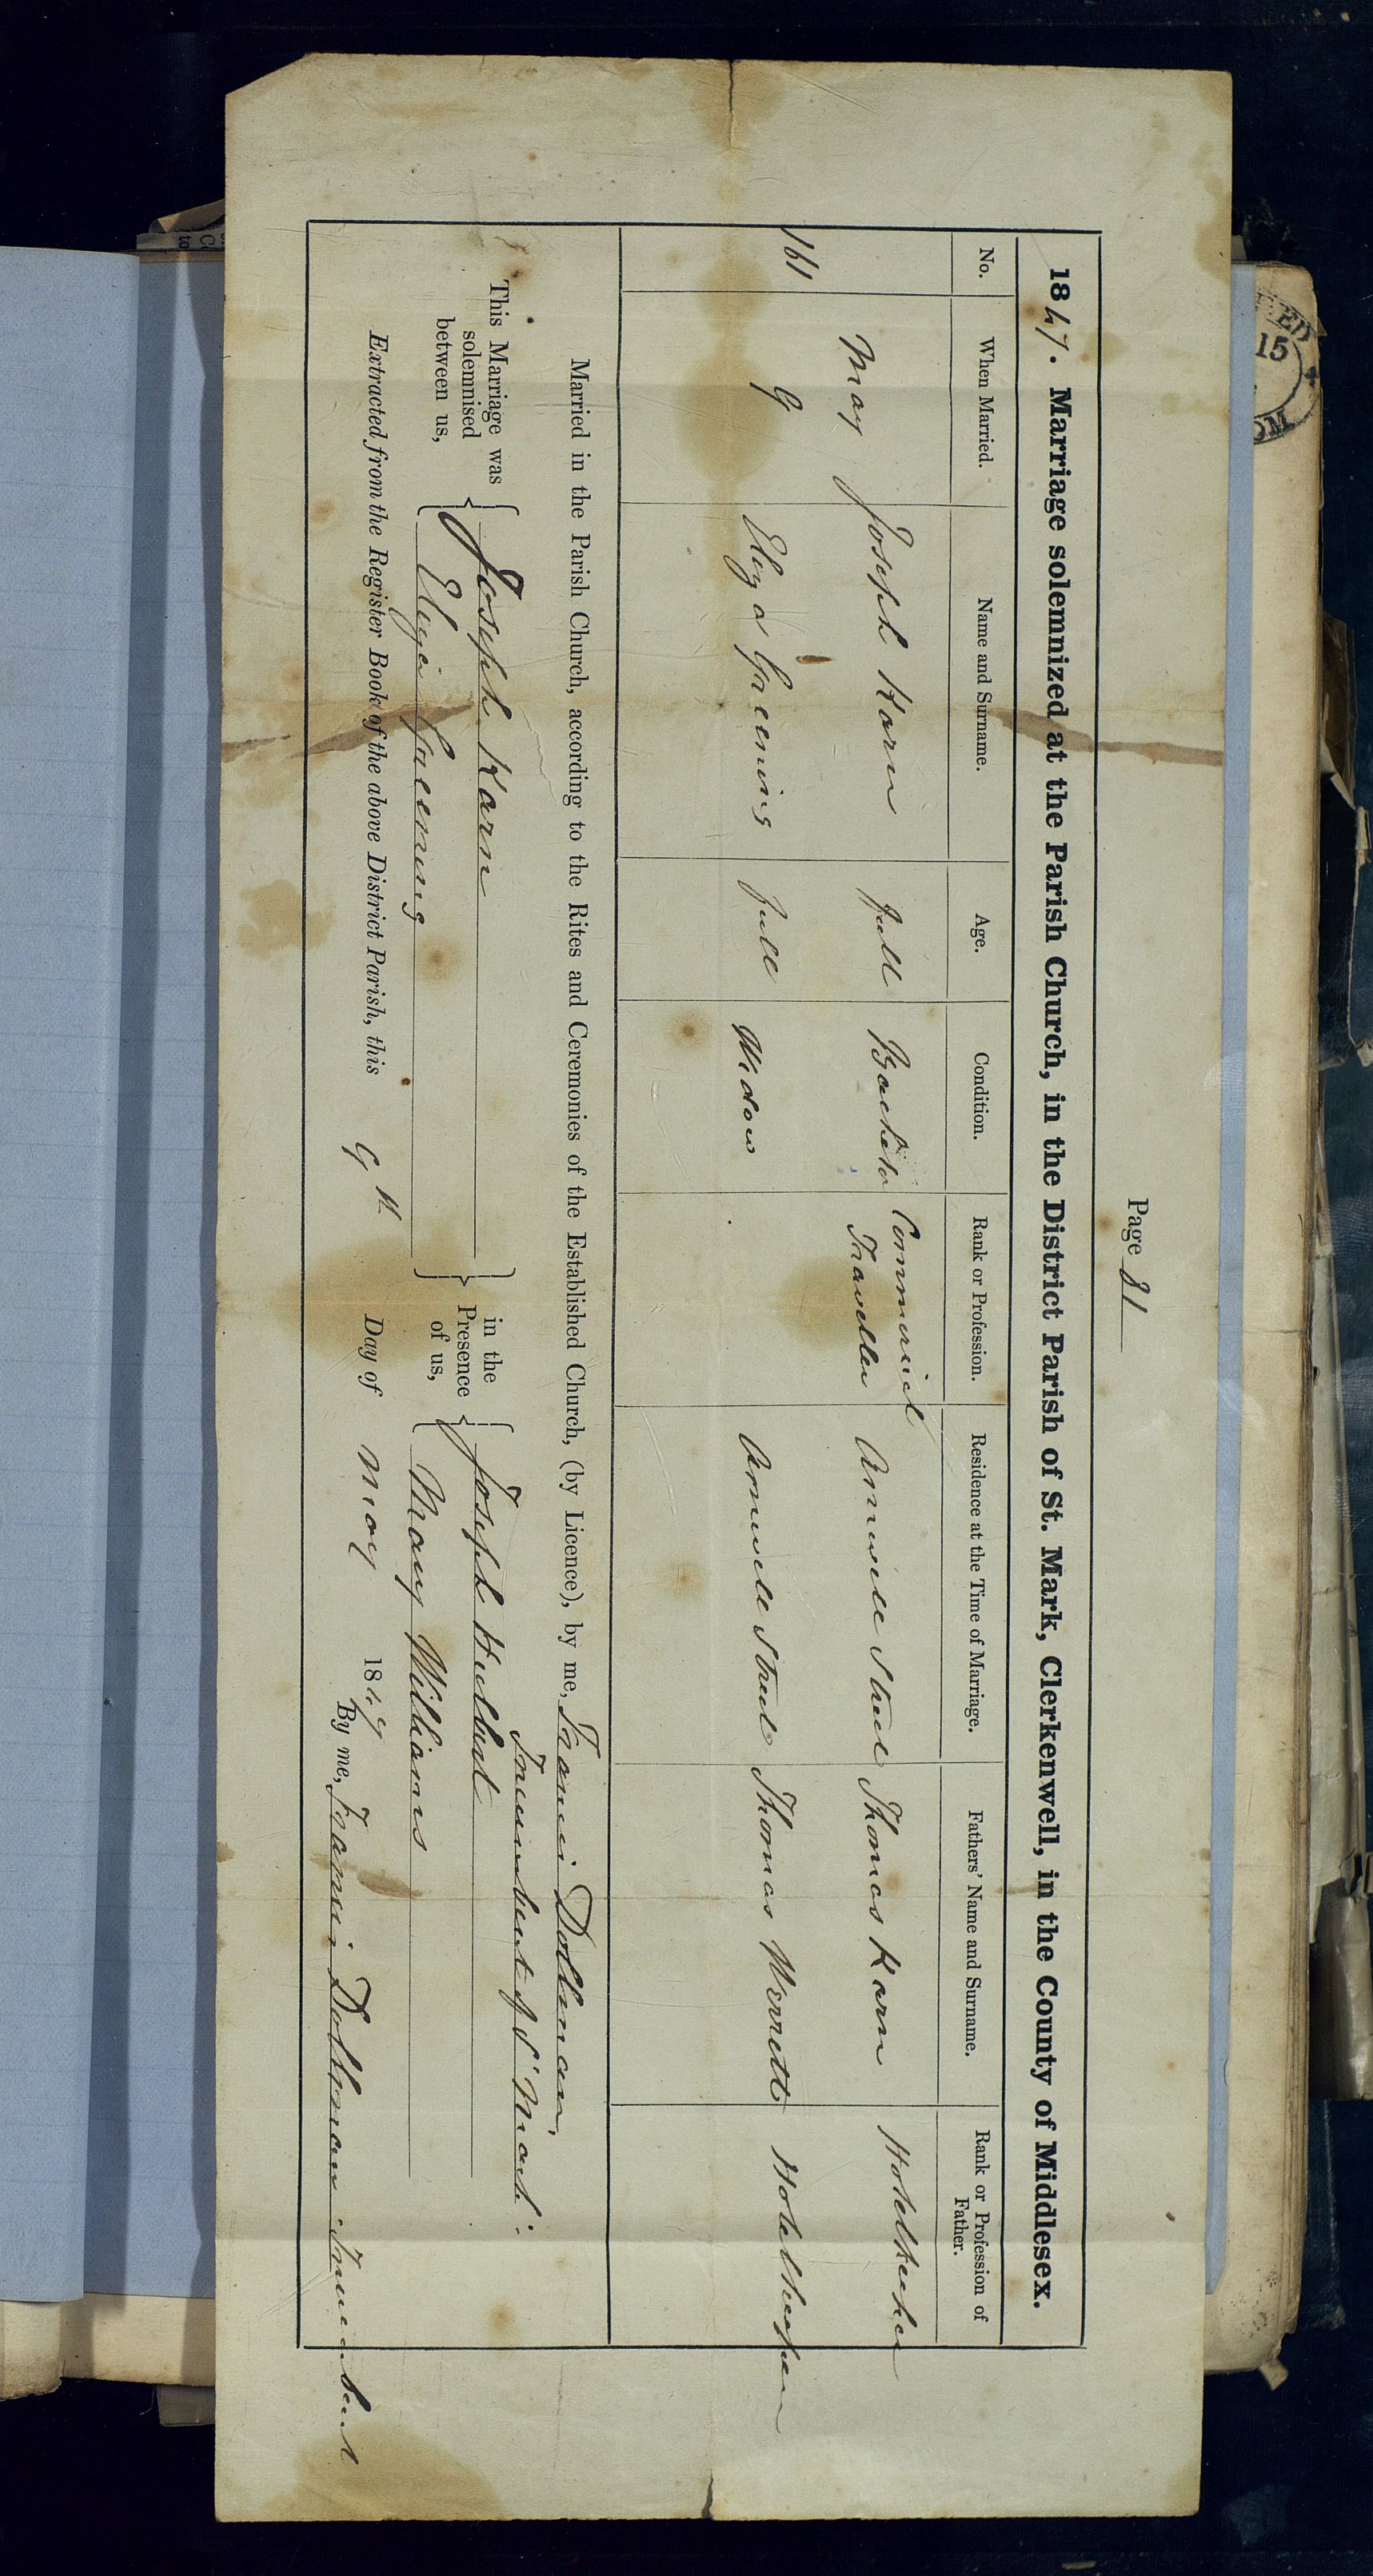 Page 81
1847. Marriage solemnized at the Parish Church, in the District Parish of St. Mark, Clerkenwell, in the County of Middlesex.
No. When Married. Name and Surname. Age. Condition. Rank or Profession. Residence at the Time of Marriage. Fathers' Name and Surname. Rank or Profession of Father.
161 May 9 Joseph Karn full Bachelor Commercial Traveller Amwell Street Thomas Karn Hotelkeeper
Eliza Greening full Widow Amwell Street Thomas Werrett Hotelkeeper
Married in the Parish Church, according to the Rites and Ceremonies of the Established Church, (by Licence), by me, Francis Dollman
Incumbent of St Mark.
This Marriage was solemnised between us,
Joseph Karn
Eliza Greening
in the Presence of us,
Joseph
Mary Williams
Extracted from the Register Book of the above District Parish, this 9th Day of May 1847
By me, Francis Dollman Incumbent
15